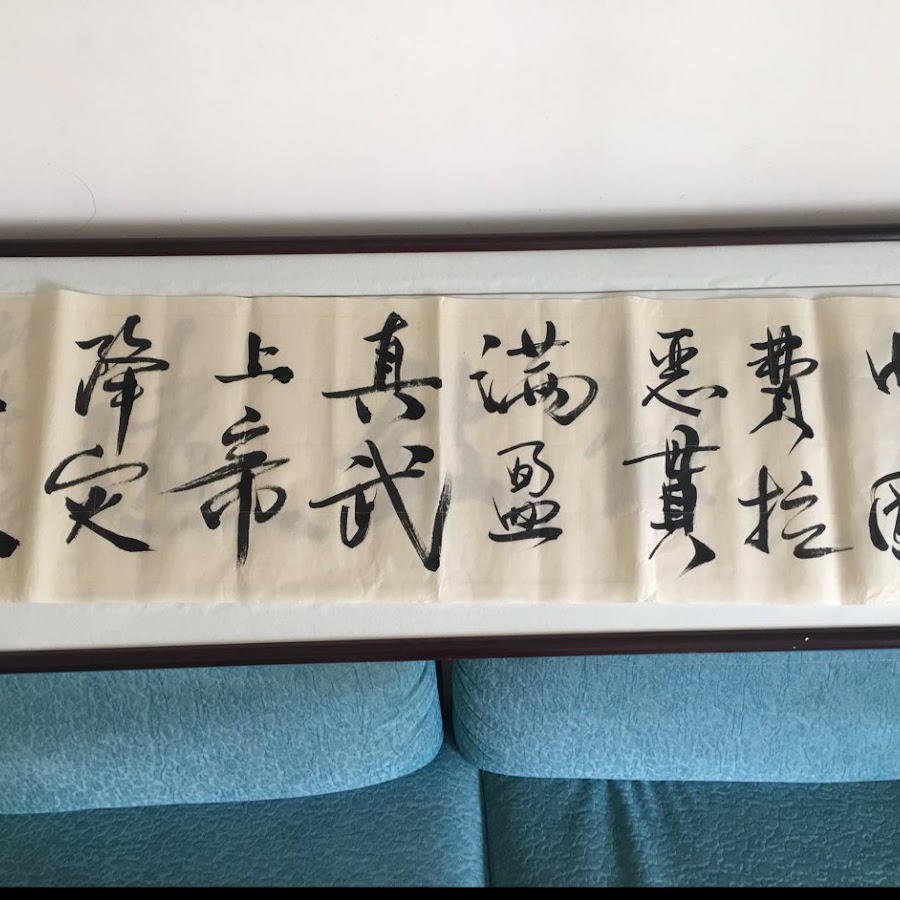 費拉
恶貫
满盈
真武
上帝
降灾